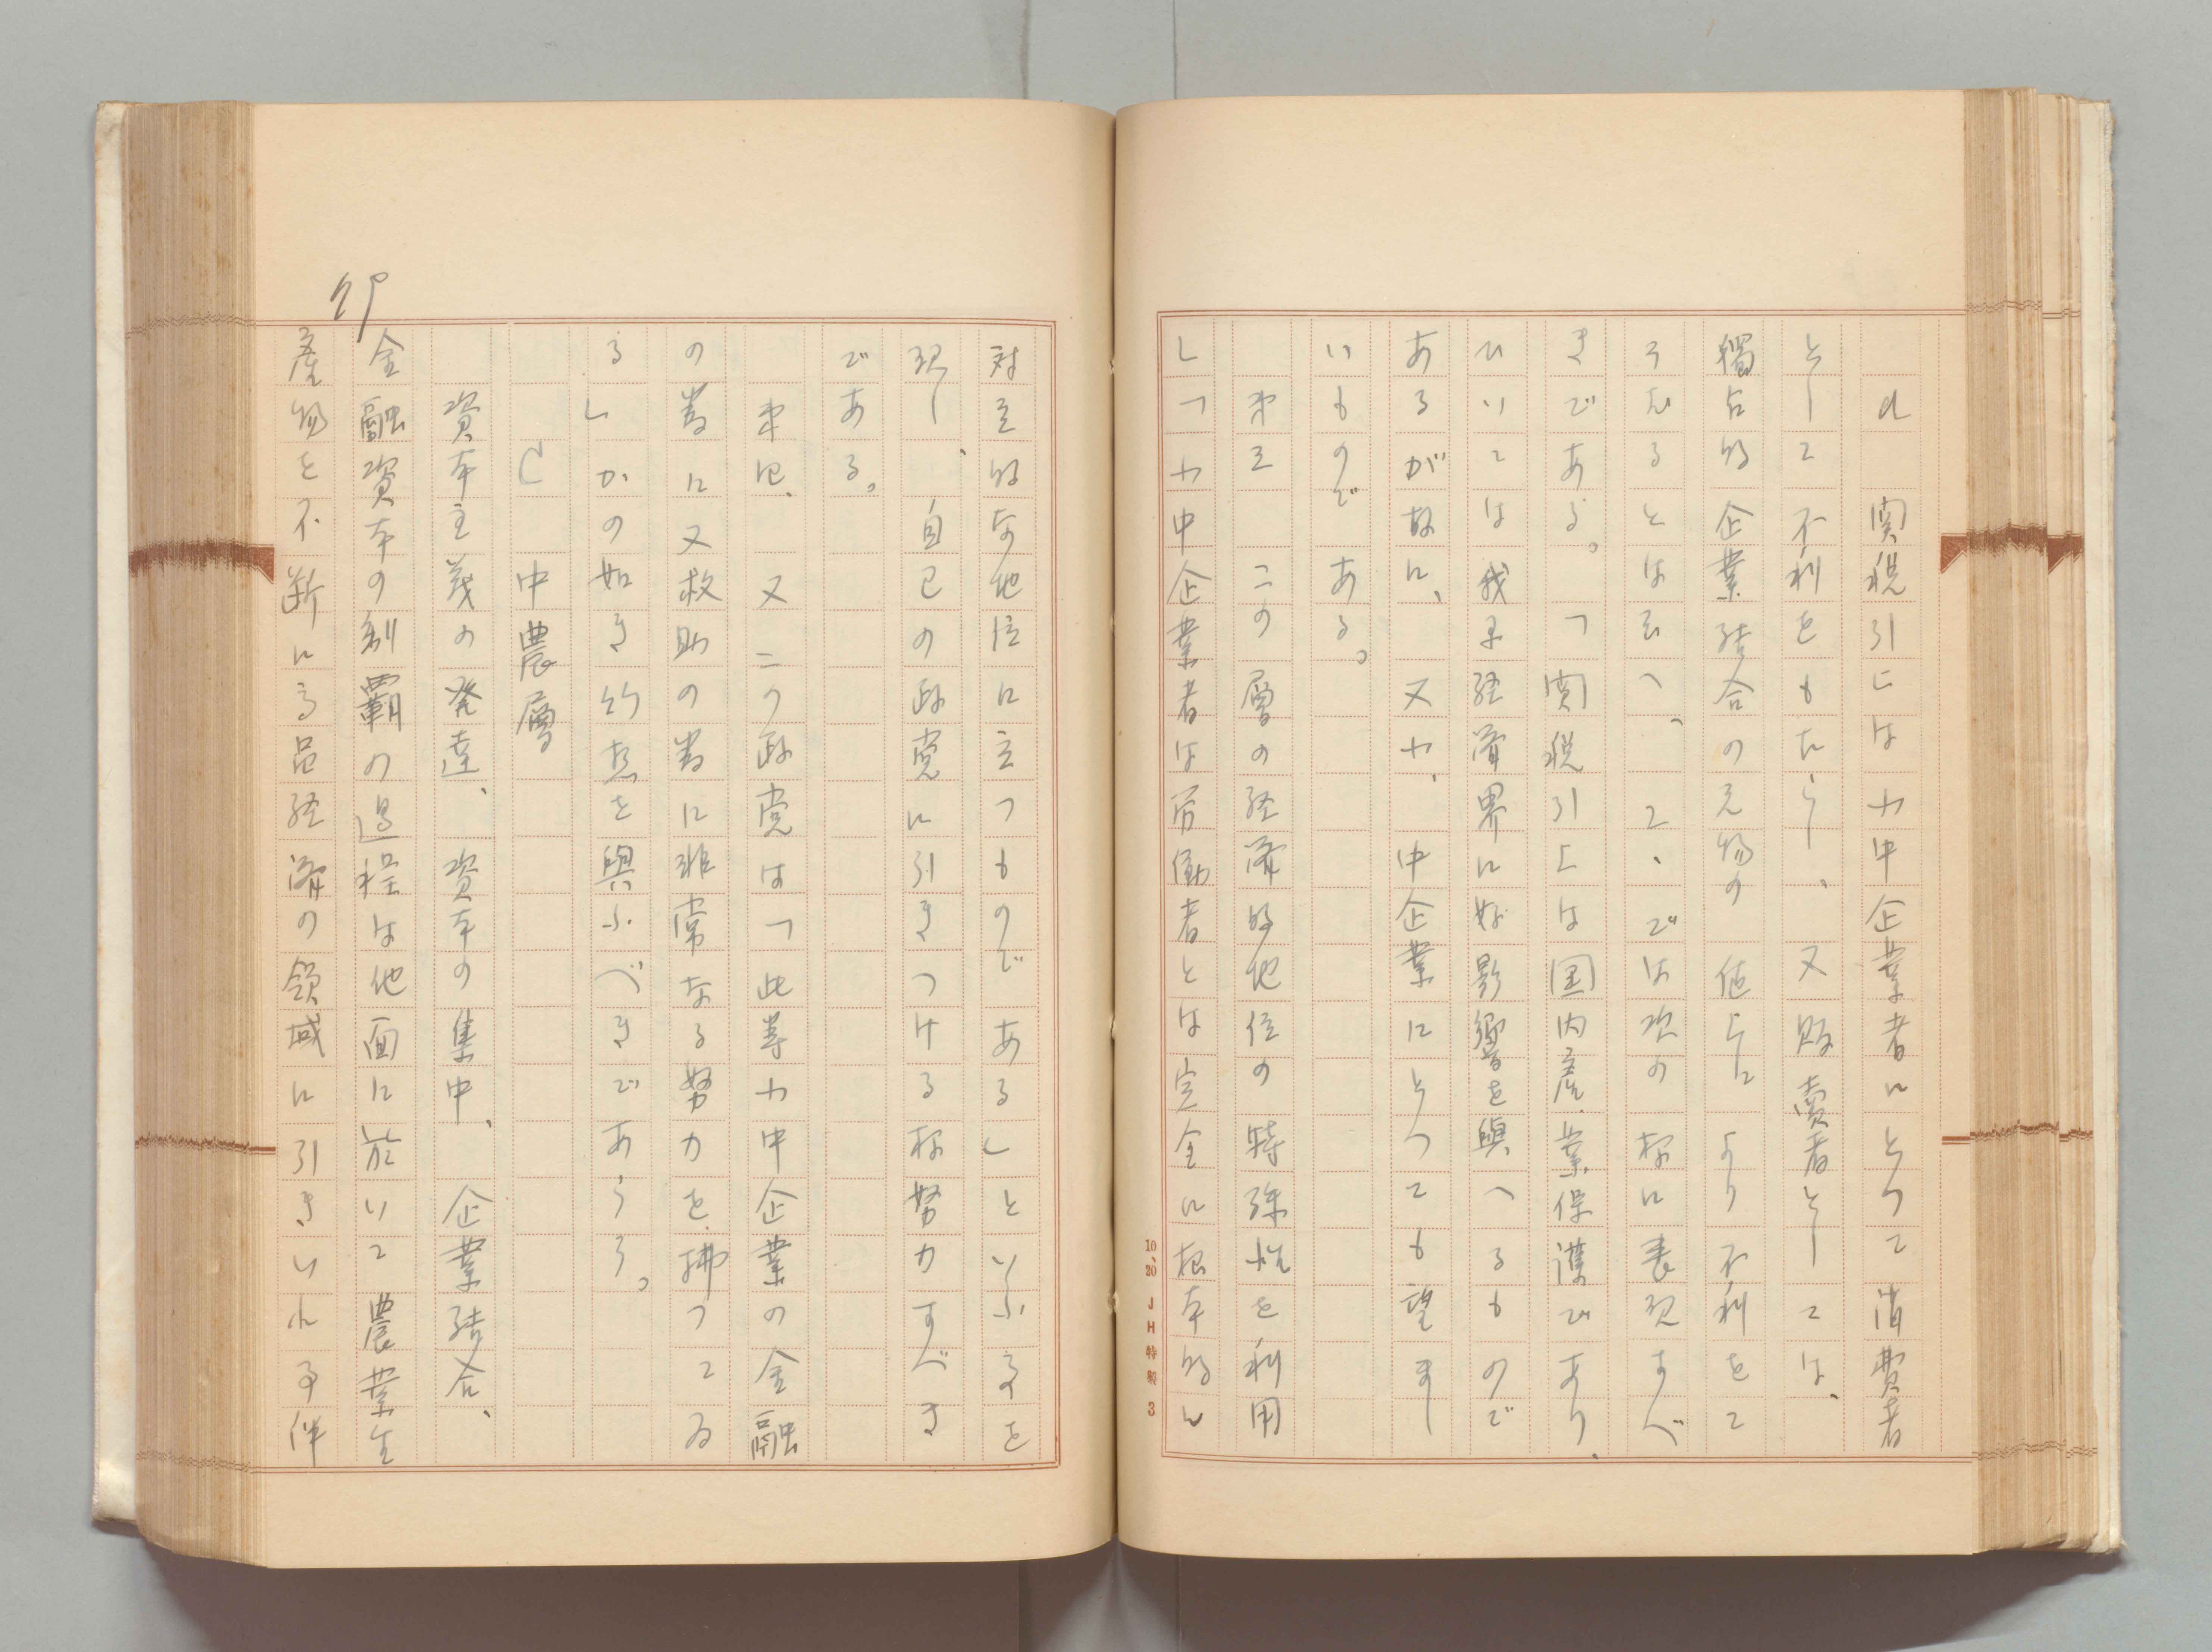 d　関税引上は小中企業者にとつて消費者
として不利をもたらし、又販賣者としては、
獨占的企業結合の見物の値上により不利をて
うむるとは云へ、こゝでは次の様に表現すべ
きである。「関税引上は国内産業保護であり、
ひいては我国経済界に好影響を與へるもので
あるが故に、又小、中企業にとつても望まし
いものである。
第三　この層の経済的地位の特殊性を利用
しつつ小中企業者は労働者とは完全に根本的に
対立的な地位に立つものであるといふ事を
説し、自己の政党に引きつける様努力すべき
である。
第四、又この政党は「此等小中企業の金融
の為に又救助の為に非常なる努力を拂つてゐ
る」かの如き外態を與ふべきであらう。
C　中農層
資本主義の発達、資本の集中、企業結合、
金融資本の制覇の過程は他面に於いて農業生
産物を不断に商品経済の領域に引きいれる事伴
10、20　JH特製　3